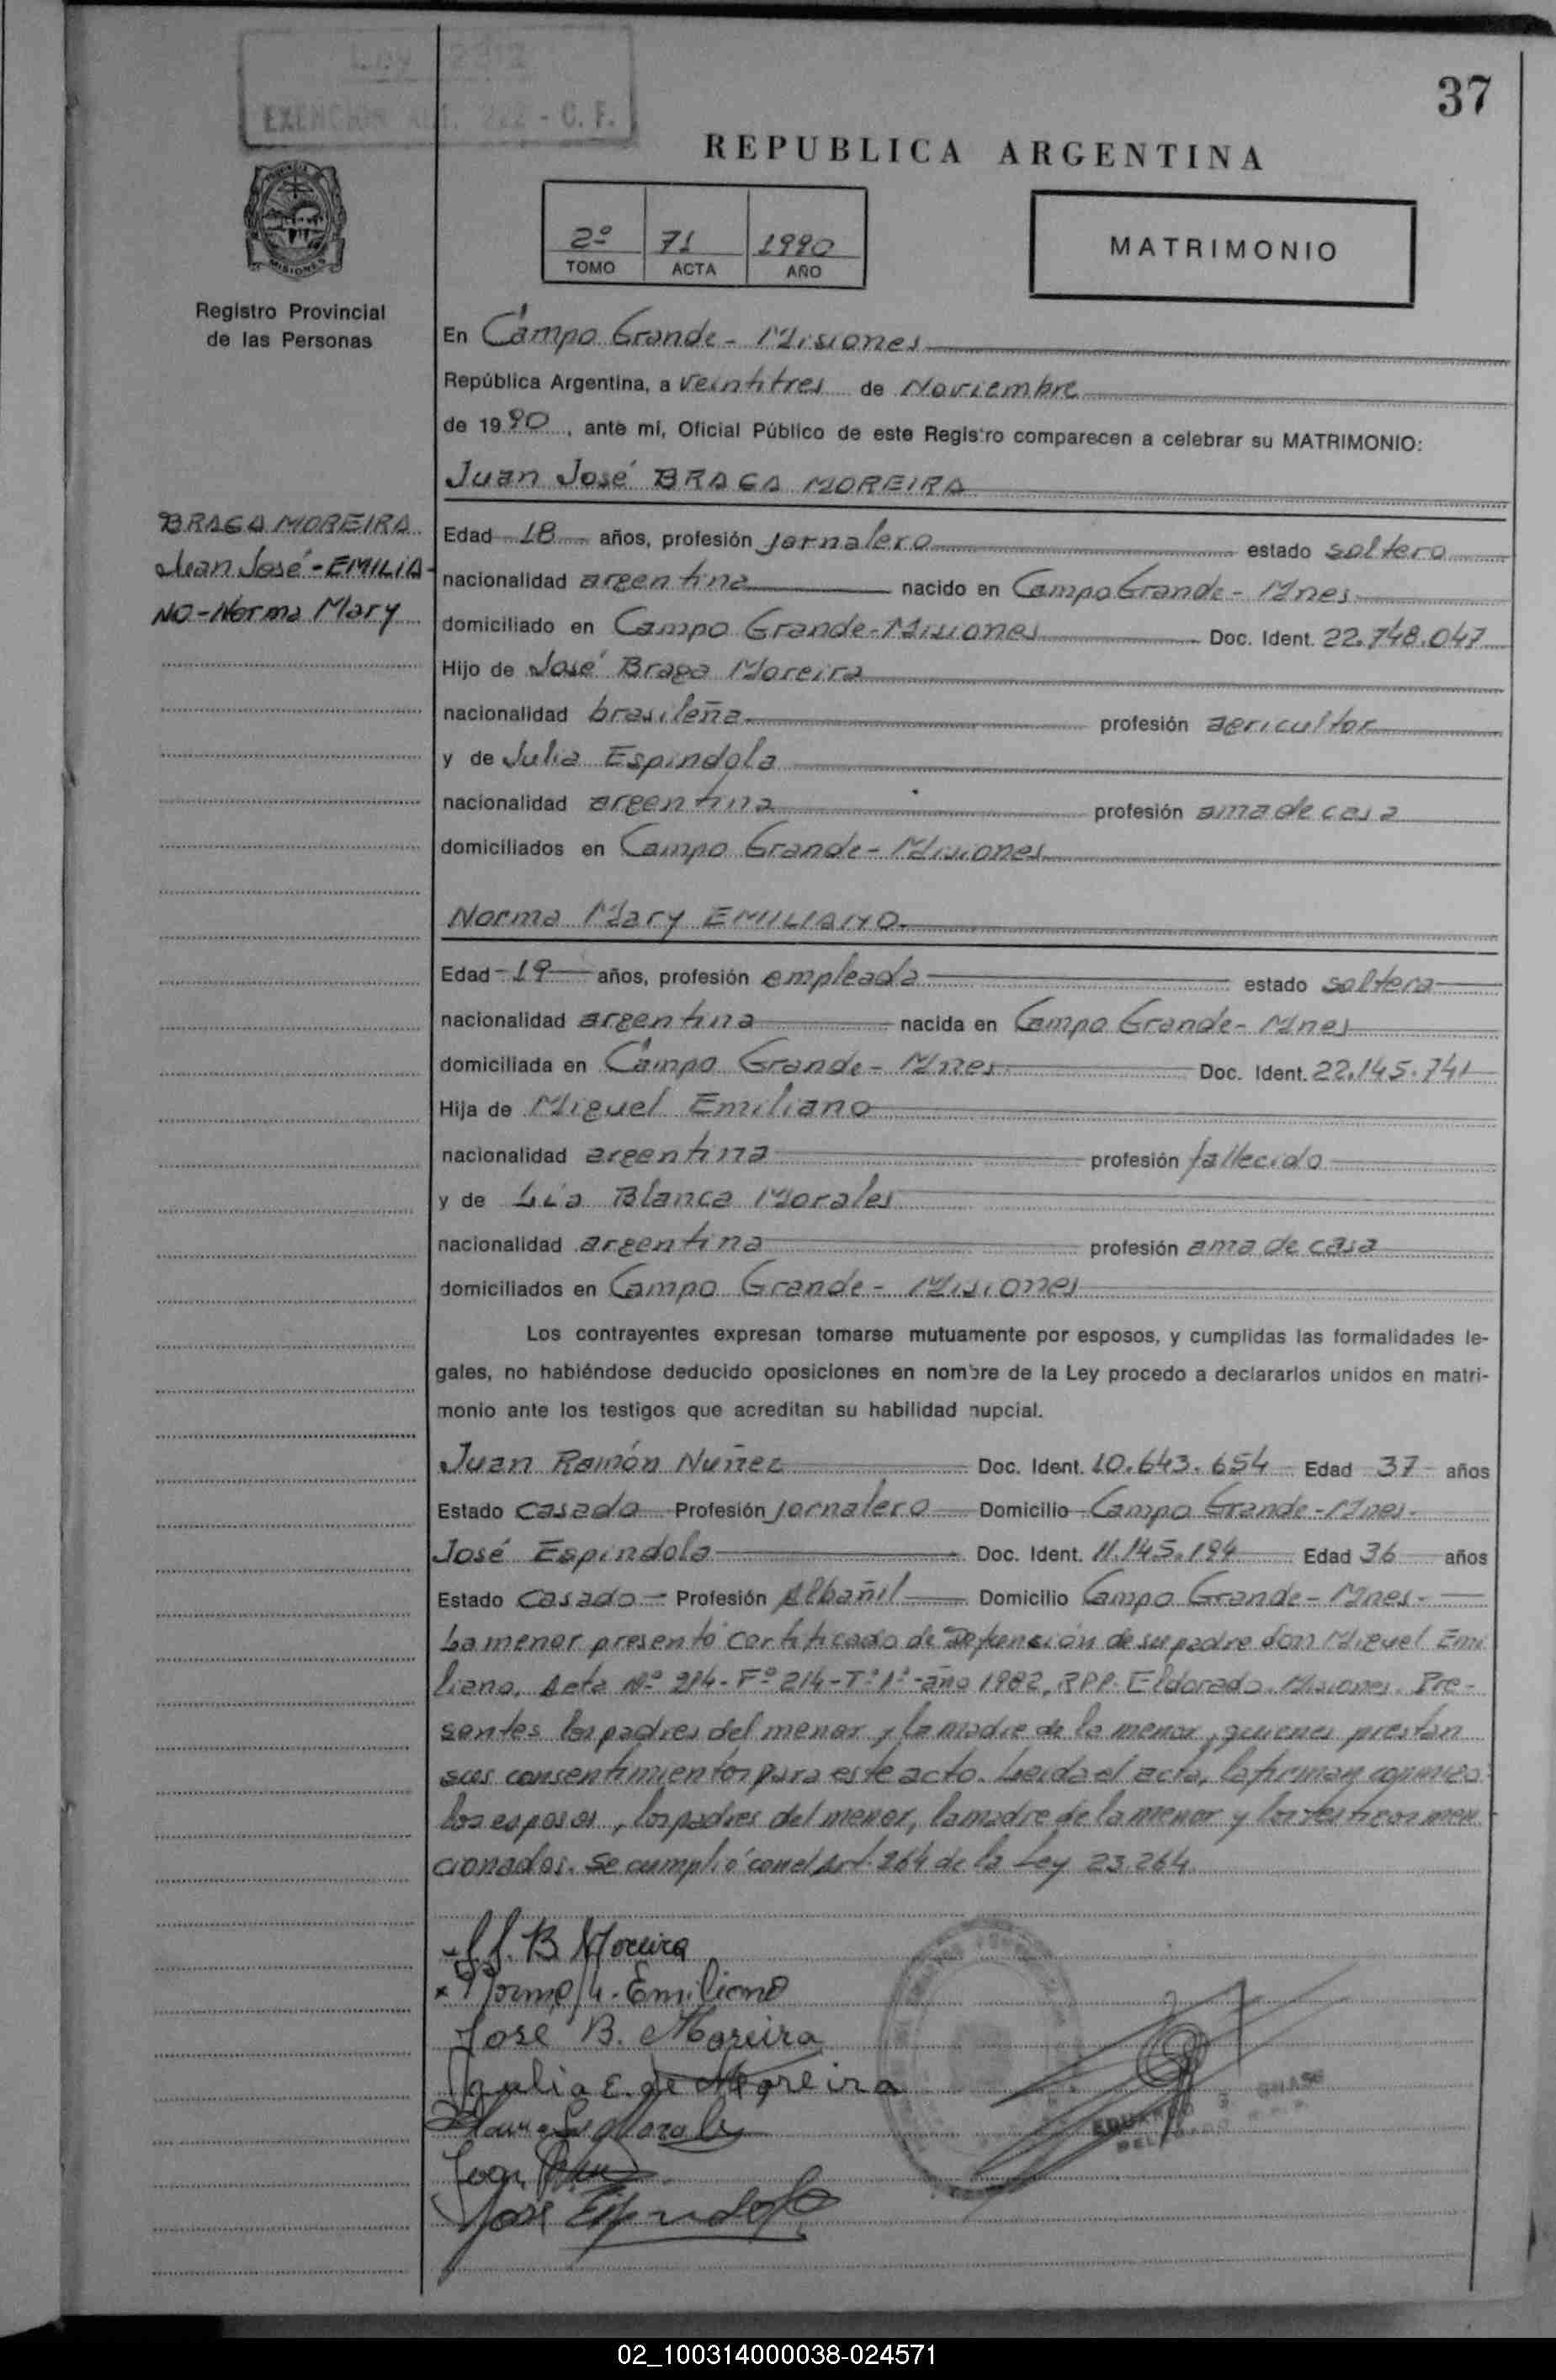 37
EXENCION ART. 222 - C. F.
REPUBLICA ARGENTINA
2º 71 1990
TOMO ACTA AÑO
MATRIMONIO
MISIONES
Registro Provincial
de las Personas
En Campo Grande - Misiones
República Argentina, a veintitres de Noviembre
de 1990, ante mí, Oficial Público de este Registro comparecen a celebrar su MATRIMONIO:
Juan José BRAGA MOREIRA
BRAGA MOREIRA
Juan José - EMILIA-
NO - Norma Mary
Edad 18 años, profesión jornalero estado soltero
nacionalidad argentina nacido en Campo Grande - Mnes
domiciliado en Campo Grande - Misiones Doc. Ident. 22.748.047
Hijo de José Braga Moreira
nacionalidad brasileña profesión agricultor
y de Julia Espindola
nacionalidad argentina profesión ama de casa
domiciliados en Campo Grande - Misiones
Norma Mary EMILIANO
Edad 19 años, profesión empleada estado soltera
nacionalidad argentina nacida en Campo Grande - Mnes
domiciliada en Campo Grande - Mnes Doc. Ident. 22.145.741
Hija de Miguel Emiliano
nacionalidad argentina profesión fallecido
y de Lia Blanca Morales
nacionalidad argentina profesión ama de casa
domiciliados en Campo Grande - Misiones
Los contrayentes expresan tomarse mutuamente por esposos, y cumplidas las formalidades le-
gales, no habiéndose deducido oposiciones en nombre de la Ley procedo a declararlos unidos en matri-
monio ante los testigos que acreditan su habilidad nupcial.
Juan Ramón Nuñez Doc. Ident. 10.643.654 Edad 37 años
Estado casado Profesión jornalero Domicilio Campo Grande - Mnes.
José Espindola Doc. Ident. 11.145.194 Edad 36 años
Estado casado - Profesión Albañil Domicilio Campo Grande - Mnes.
La menor presentó certificado de Defunción de su padre don Miguel Emi
liano, Acta Nº 214 - Fº 214 - Tº 1º - año 1982, RPP. Eldorado. Misiones. Pre-
sentes los padres del menor y la madre de la menor, quienes prestan
sus consentimientos para este acto. Leida el acta, la firman conmigo
los esposos, los padres del menor, la madre de la menor y los testigos men
cionados. Se cumplió con el Art. 264 de la Ley 23.264.
J. J. B Moreira
x Norma M. Emiliano
José B. Moreira
Julia E. de Moreira
Morales
José Espindola
EDUARDO
02_100314000038-024571